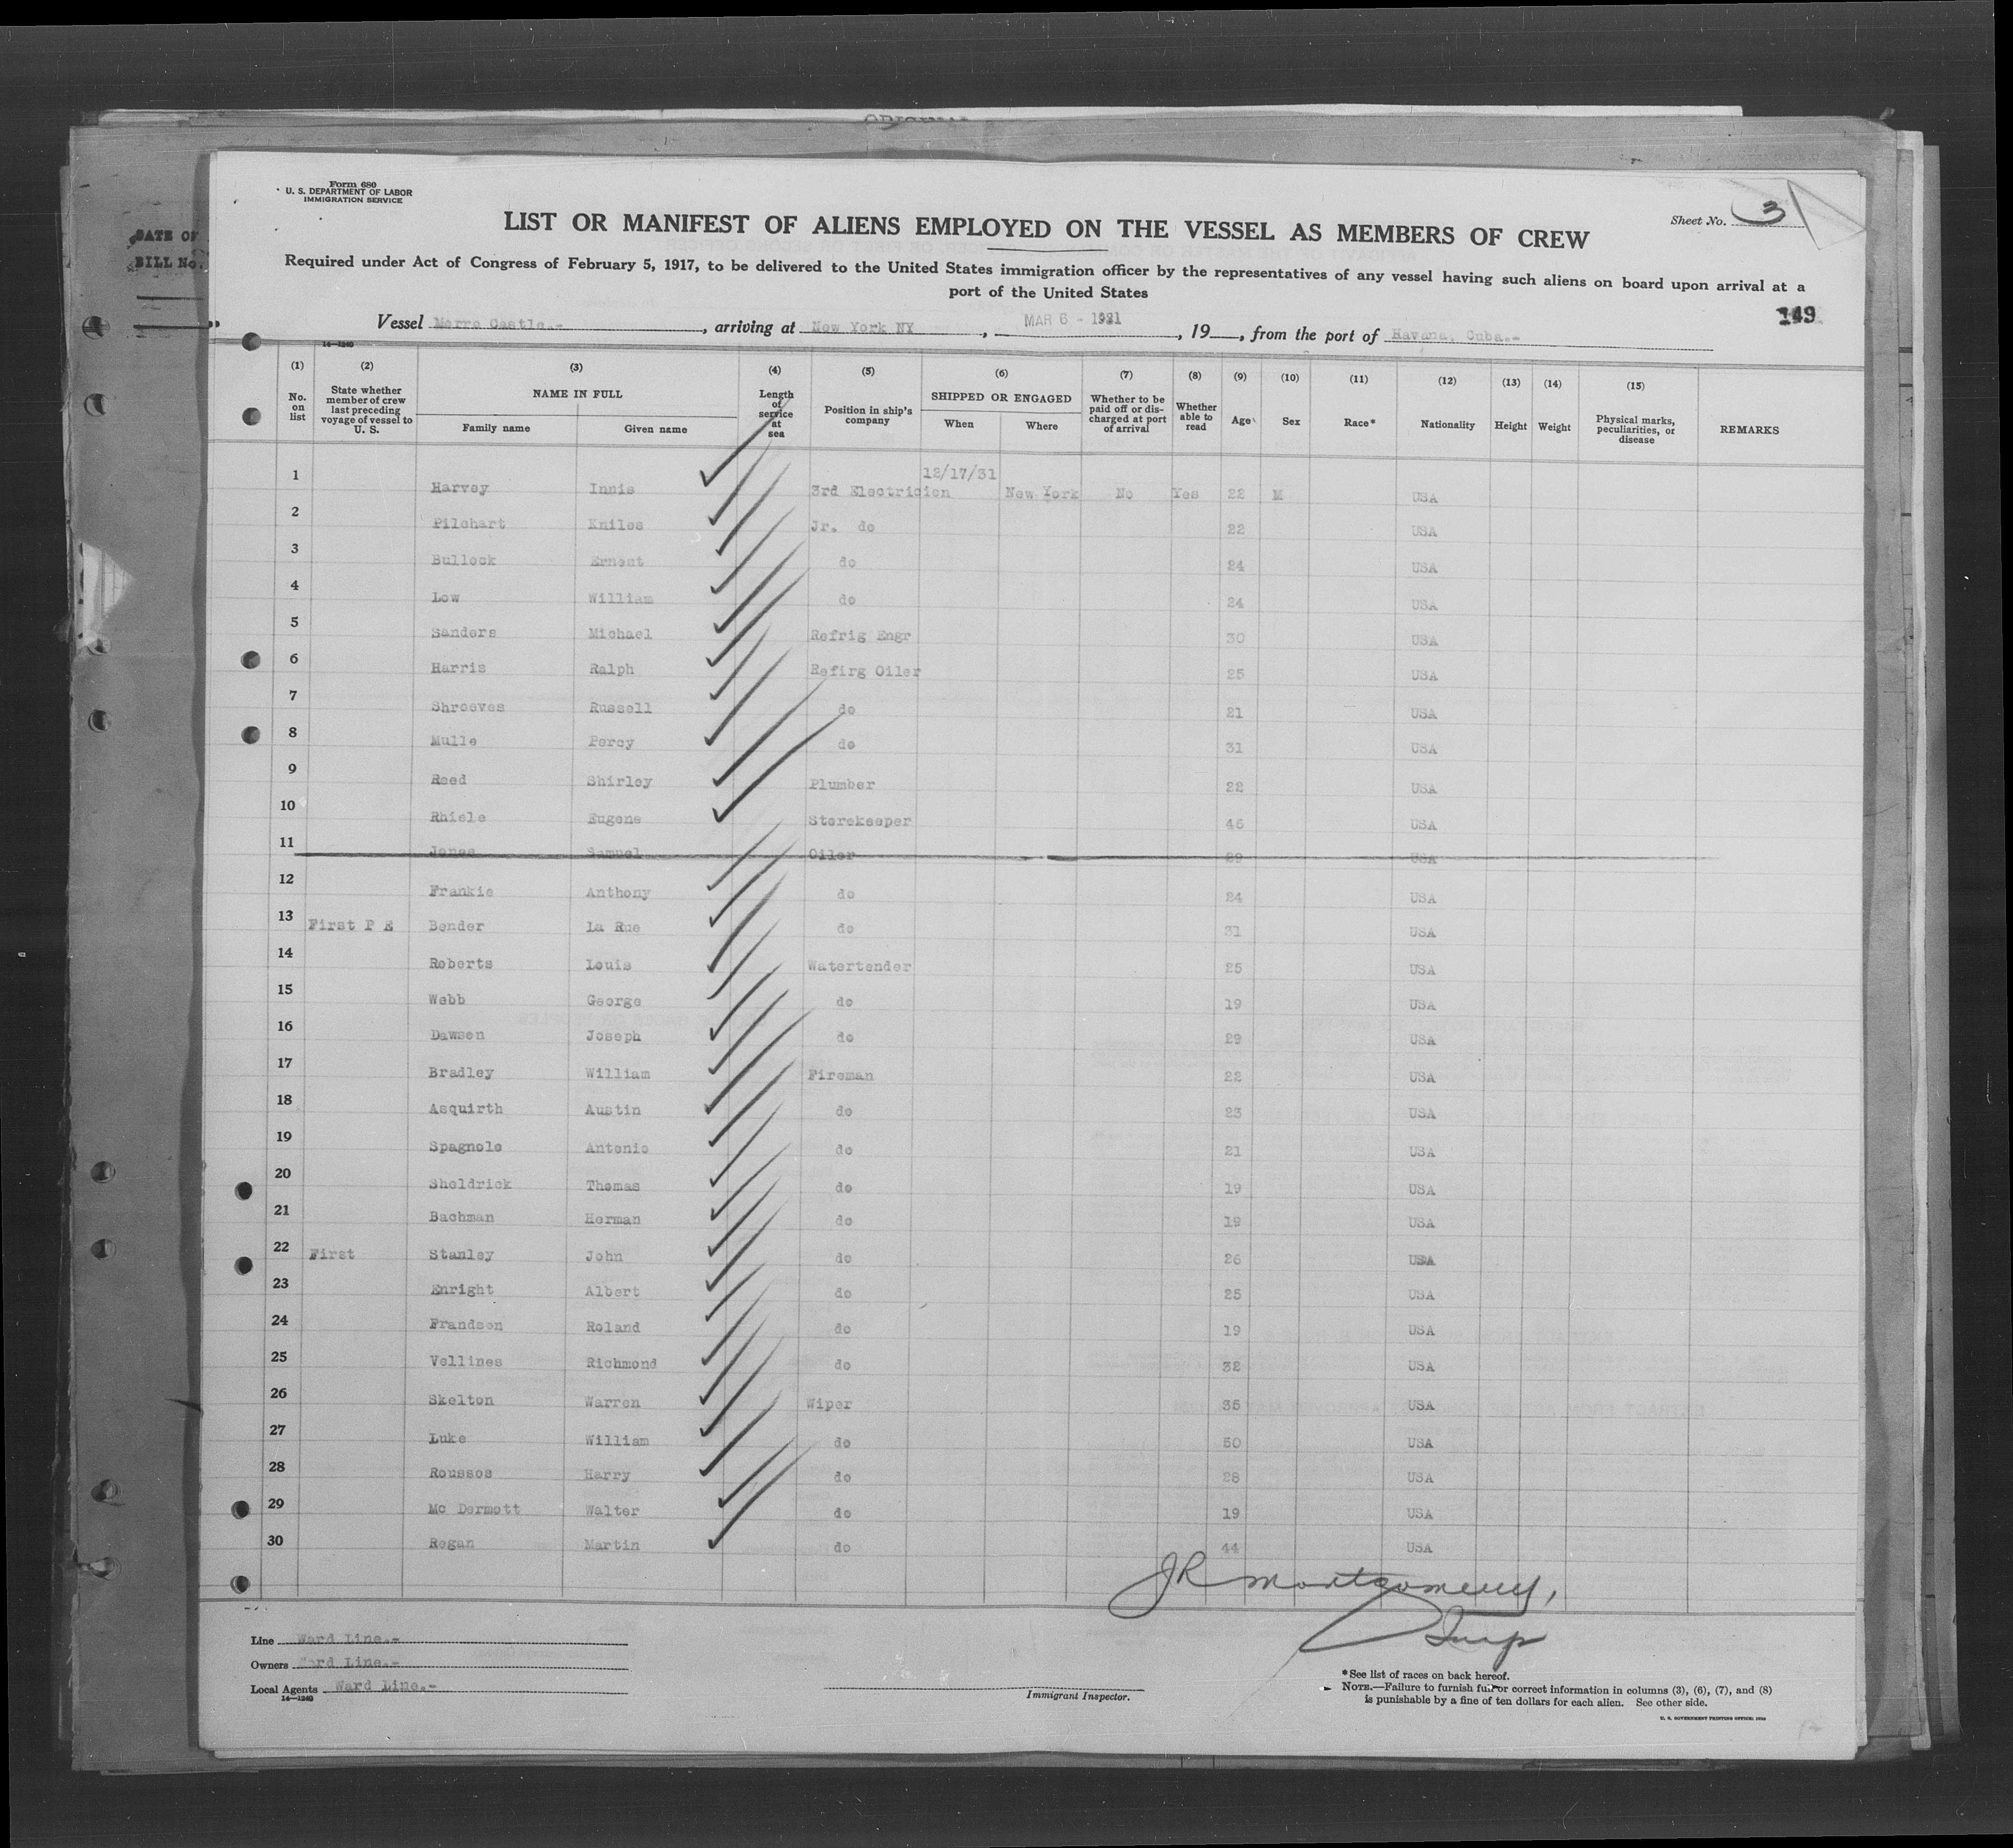 ORIGINAL
DATE OF
BILL No.
Form 680
U. S. DEPARTMENT OF LABOR
IMMIGRATION SERVICE
LIST OR MANIFEST OF ALIENS EMPLOYED ON THE VESSEL AS MEMBERS OF CREW
Sheet No. 3
Required under Act of Congress of February 5, 1917, to be delivered to the United States immigration officer by the representatives of any vessel having such aliens on board upon arrival at a
port of the United States
149
Vessel Morro Castle.-, arriving at New York NY, MAR 6 - 1931, 19__, from the port of Havana, Cuba.-
14—1240
(1) (2) (3) (4) (5) (6) (7) (8) (9) (10) (11) (12) (13) (14) (15)
No. on list State whether member of crew last preceding voyage of vessel to U. S. NAME IN FULL Family name Given name Length of service at sea Position in ship's company SHIPPED OR ENGAGED When Where Whether to be paid off or discharged at port of arrival Whether able to read Age Sex Race* Nationality Height Weight Physical marks, peculiarities, or disease REMARKS
1 Harvey Innis 3rd Electricien 12/17/31 New York No Yes 22 M USA
2 Pilchart Kniles Jr. do 22 USA
3 Bullock Ernest do 24 USA
4 Low William do 24 USA
5 Sanders Michael Refrig Engr 30 USA
6 Harris Ralph Refirg Oiler 25 USA
7 Shreeves Russell do 21 USA
8 Mulle Percy do 31 USA
9 Reed Shirley Plumber 22 USA
10 Rhiele Eugene Storekeeper 46 USA
11 Jones Samuel Oiler 29 USA
12 Frankie Anthony do 24 USA
13 First P E Bender La Rue do 31 USA
14 Roberts Louis Watertender 25 USA
15 Webb George do 19 USA
16 Dawson Joseph do 29 USA
17 Bradley William Fireman 22 USA
18 Asquirth Austin do 23 USA
19 Spagnolo Antonio do 21 USA
20 Sheldrick Thomas do 19 USA
21 Bachman Herman do 19 USA
22 First Stanley John do 26 USA
23 Enright Albert do 25 USA
24 Frandson Roland do 19 USA
25 Vellines Richmond do 32 USA
26 Skelton Warren Wiper 35 USA
27 Luke William do 50 USA
28 Roussos Harry do 28 USA
29 Mc Dermott Walter do 19 USA
30 Regan Martin do 44 USA
JR Montgomery,
Insp
Line Ward Line.-
Owners Ward Line.-
Local Agents Ward Line.-
14—1240
Immigrant Inspector.
*See list of races on back hereof.
NOTE.—Failure to furnish full or correct information in columns (3), (6), (7), and (8)
is punishable by a fine of ten dollars for each alien. See other side.
U. S. GOVERNMENT PRINTING OFFICE: 1930